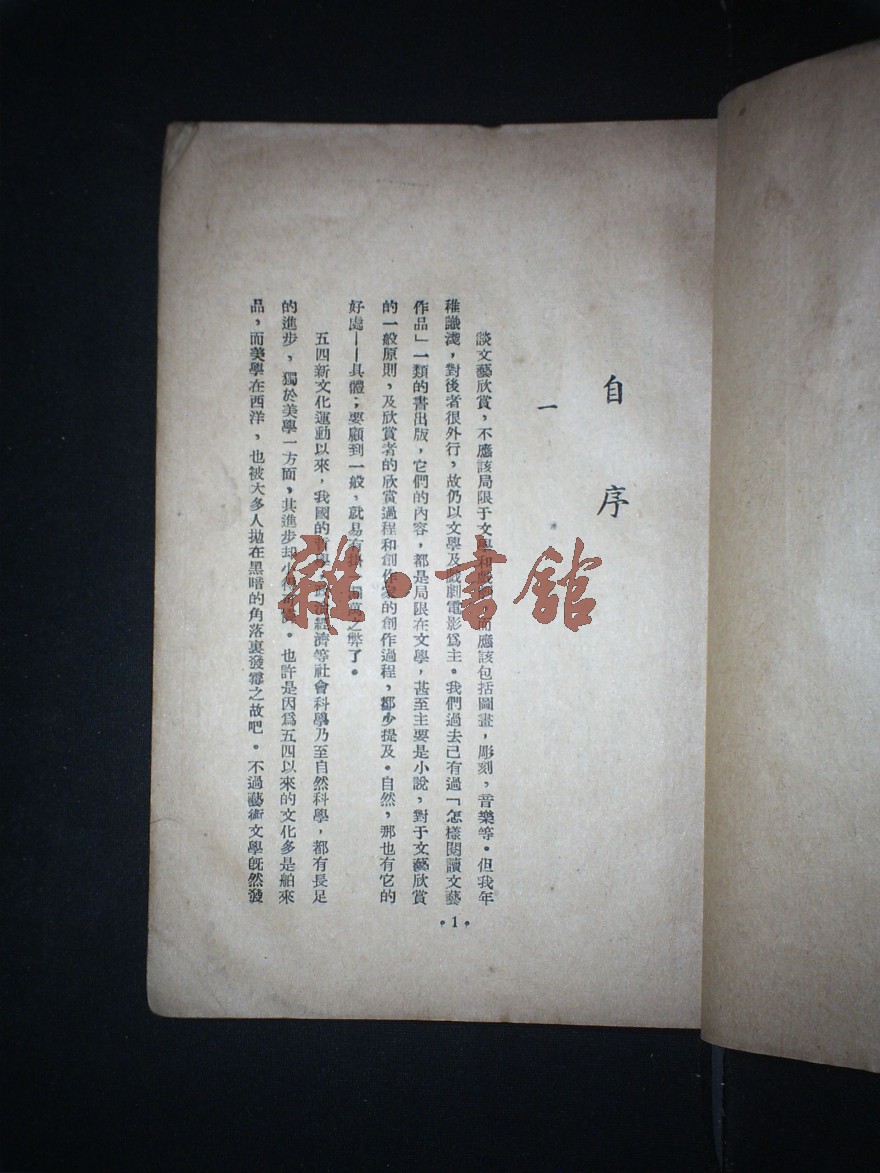 自序
一
談文藝欣賞，不應該局限于文學和戲劇，而應該包括圖畫，彫刻，音樂等。但我年
稚識淺，對後者很外行，故仍以文學及戲劇電影爲主。我們過去已有過「怎樣閱讀文藝
作品」一類的書出版，它們的內容，都是局限在文學，甚至主要是小說，對于文藝欣賞
的一般原則，及欣賞者的欣賞過程和創作家的創作過程，都少提及。自然，那也有它的
好處——具體；要顧到一般，就易有掛一漏萬之弊了。
五四新文化運動以來，我國的哲學，政治經濟等社會科學乃至自然科學，都有長足
的進步，獨於美學一方面，其進步却小得可憐。也許是因爲五四以來的文化多是舶來
品，而美學在西洋，也被大多人拋在黑暗的角落裏發霉之故吧。不過藝術文學旣然發
•1•
雜·書館